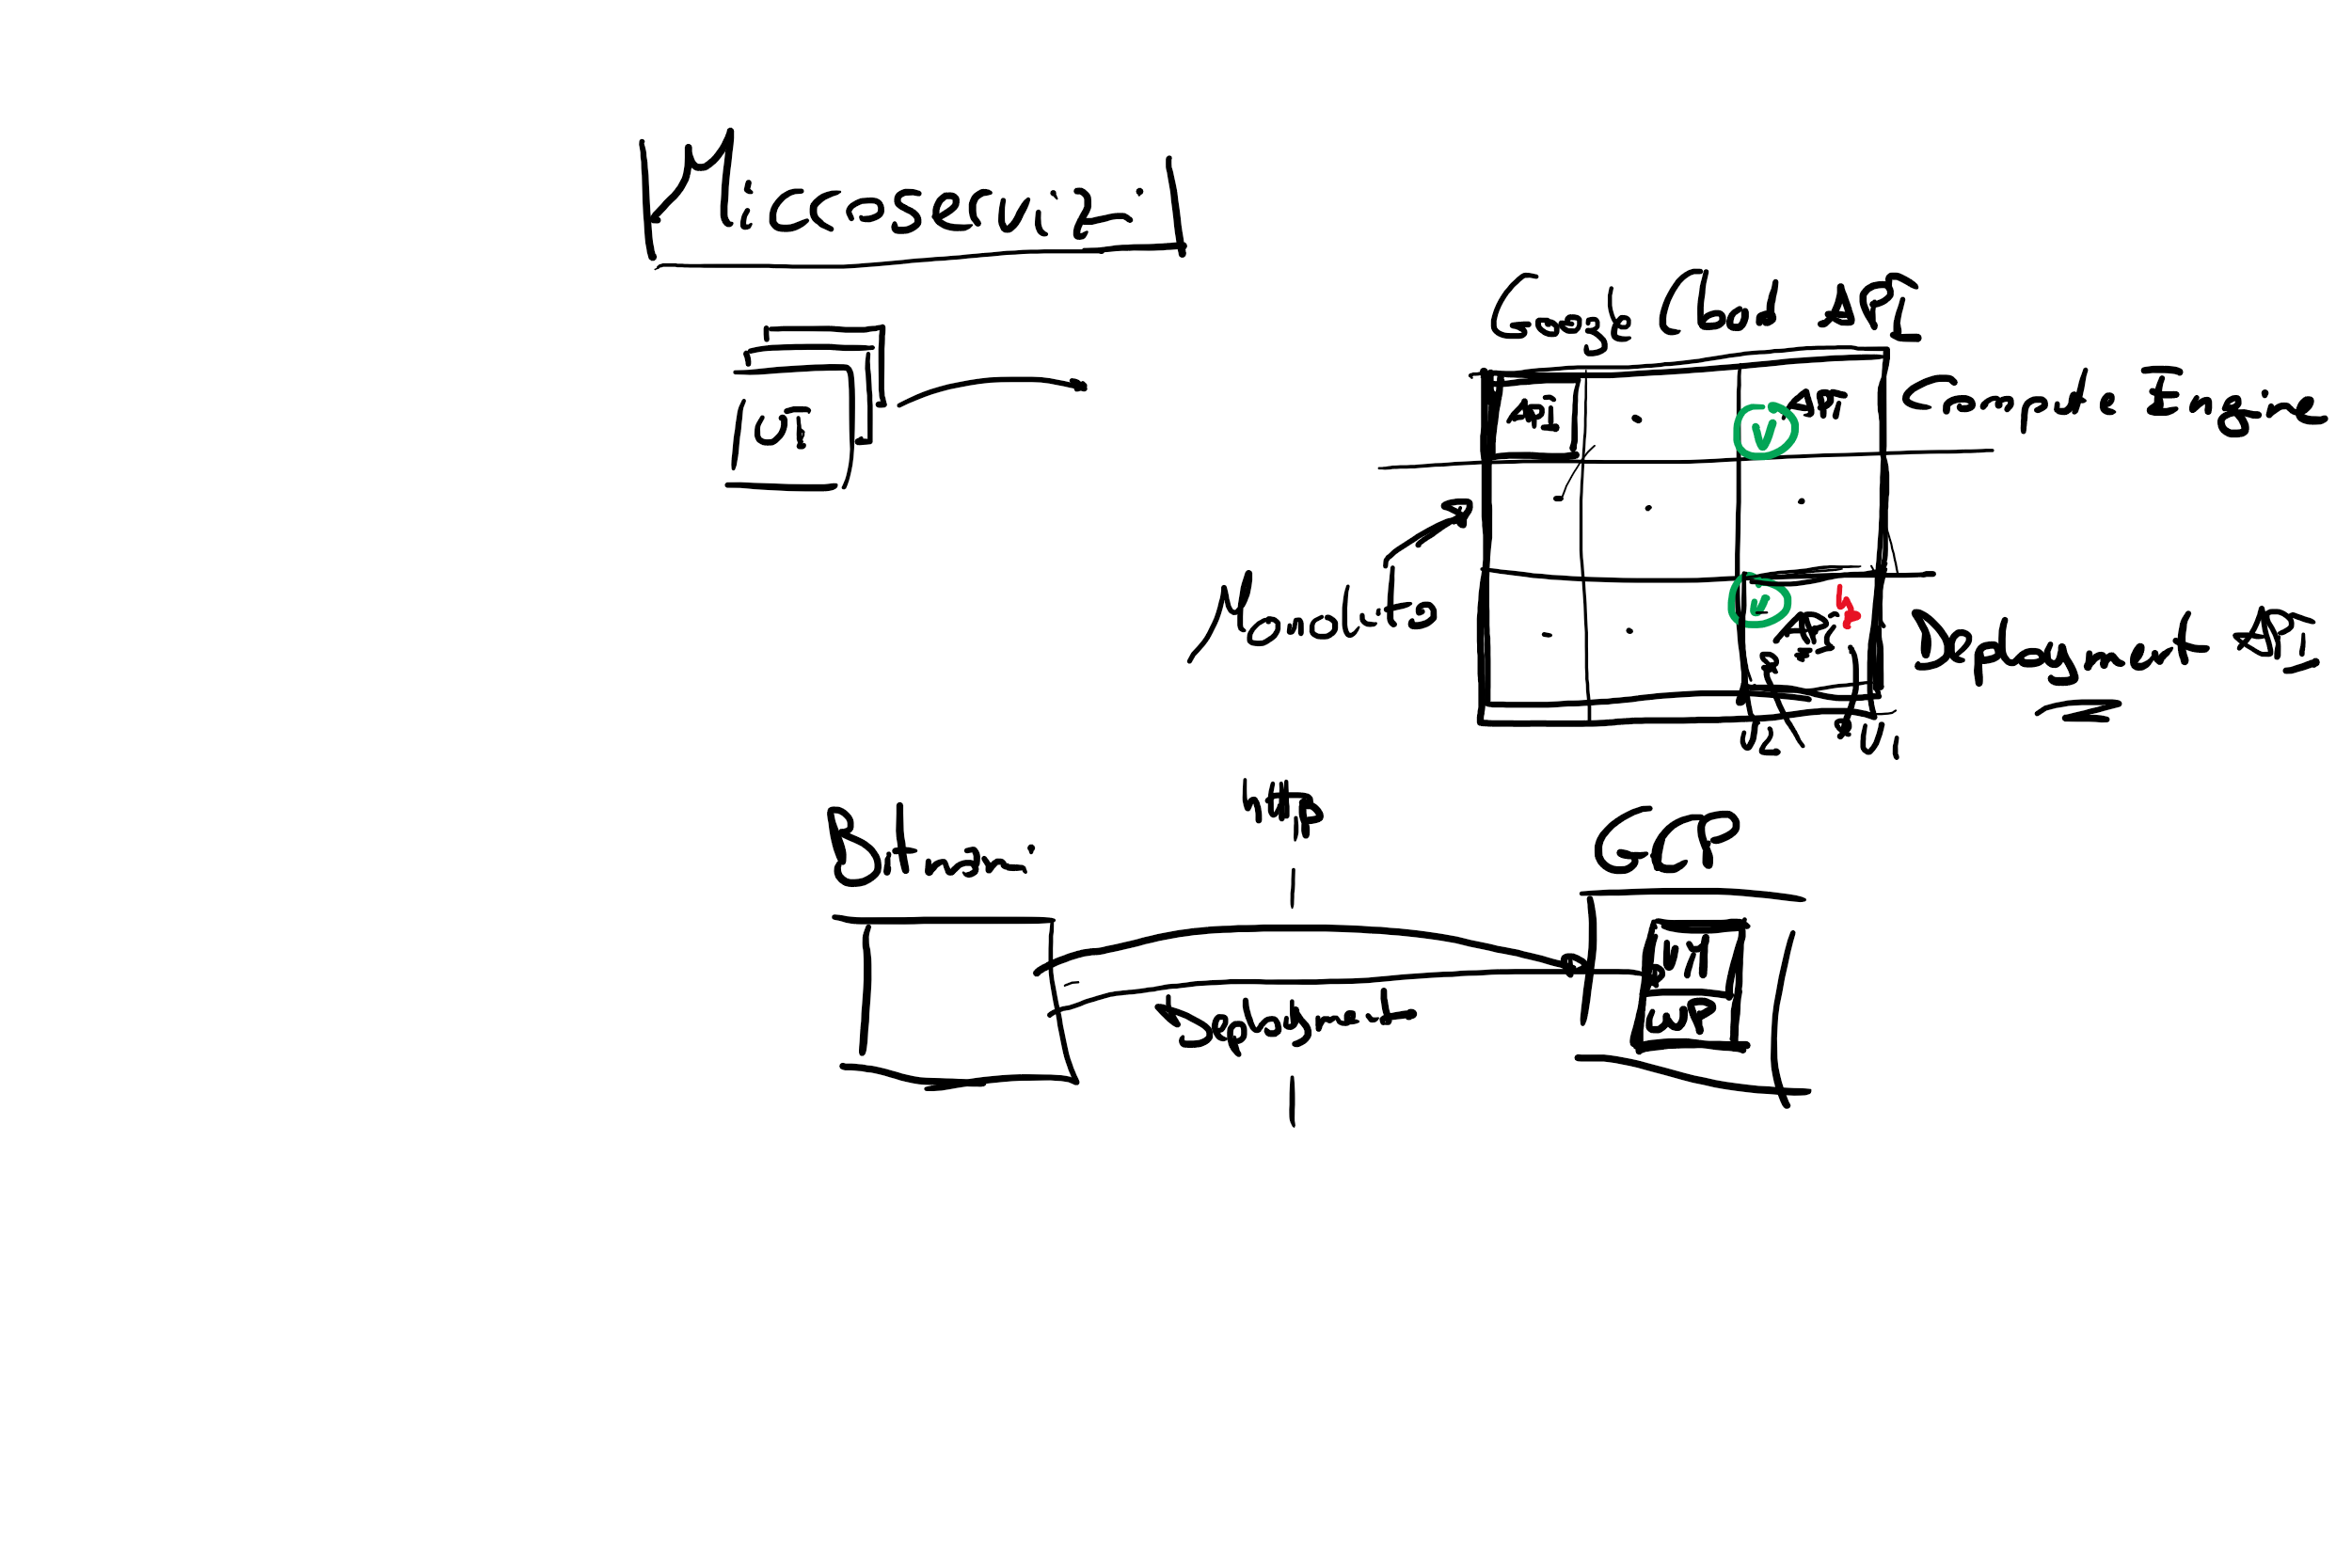 Microservizi
Google Cloud API
UI
API
API
Compute Engine
V
V
Monolito
API
Deployment API
V2
V1
Bitnami
HTTP
GCP
VM
WP
Deployment